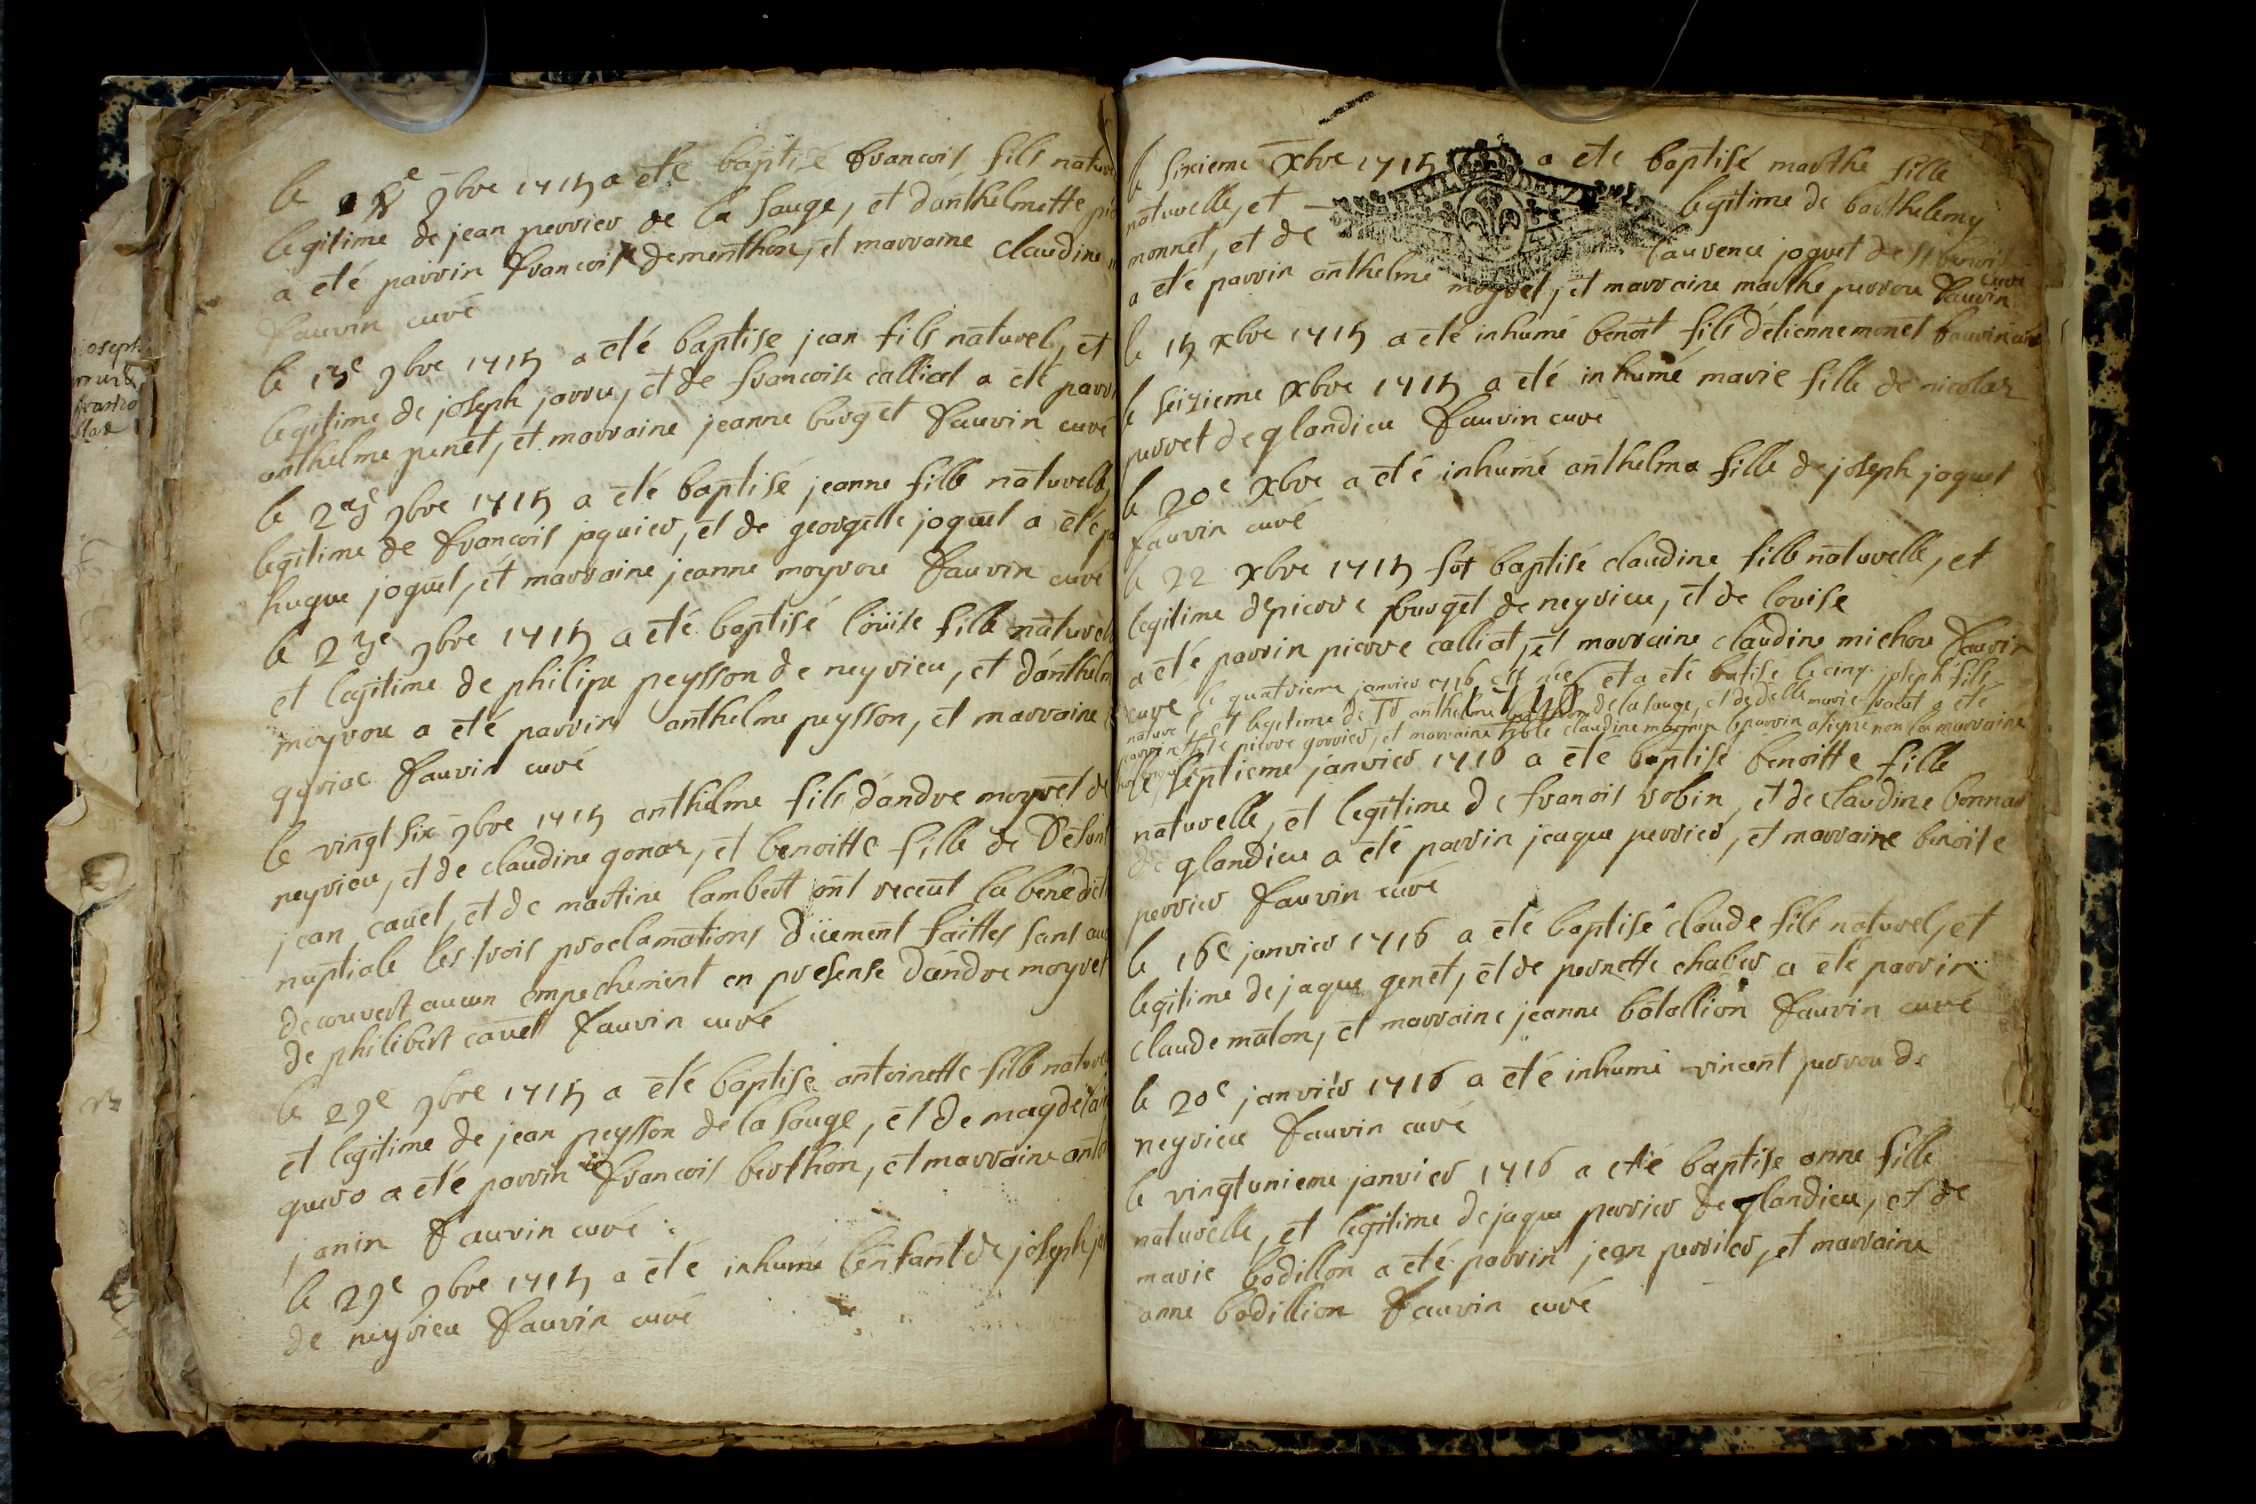 joseph
le 9bre 1715 a eté baptisé francois fils natur
legitime de jean perrier de la sauge, et danthelmette
a eté parrin francois dementhon, et marraine claudine
fauvin curé
le 13e 9bre 1715 a eté baptise jean fils naturel, et
legitime de joseph jarru, et de francoise calliat a eté parr
anthelme penet, et marraine jeanne burget fauvin curé
le 9bre 1715 a eté baptisé jeanne fille naturelle,
legitime de francois joquier, et de georgette joquet a eté
hugue joquet, et marraine jeanne moyrou fauvin curé
le 9bre 1715 a eté baptisé loüise fille naturell
et legitime de philipe peysson de neyrieu, et danthelm
moyrou a eté parrin anthelme peysson, et marraine
fauvin curé
le vingt six 9bre 1715 anthelme fils dandre moyret de
neyrieu, et de claudine gonar, et benoitte fille de defunt
jean cauet, et de martine lambert ont receut la benedict
nuptiale les trois proclamations düement faittes sans
decouvert aucun empechement en presense dandre moyret
de philibert cauet fauvin curé
le 29e 9bre 1715 a eté baptisé antoinette fille nature
et legitime de jean peysson de la sauge, et de magdelai
a eté parrin francois berthon, et marraine
janin fauvin curé
le 29e 9bre 1715 a eté inhumé lenfant de joseph
de neyrieu fauvin curé
le sixieme xbre 1715 a eté baptisé marthe fille
naturelle, et legitime de barthelemy
monnet, et de laurence joquet de st
a eté parrin anthelme moyret, et marraine marthe perrou fauvin
curé
le 15 xbre 1715 a eté inhumé benoit fils détienne monet fauvin curé
le seizieme xbre 1715 a eté inhumé marie fille de nicolas
perret de glandieu fauvin curé
le 20e xbre a eté inhumé anthelma fille de joseph joquet
fauvin curé
le 22 xbre 1715 fut baptisé claudine fille naturelle, et
legitime de pierre burget de neyrieu, et de louise
a eté parrin pierre calliat, et marraine claudine michou fauvin
curé le quatrieme janvier 1716 est née et a eté batisé le cinq joseph fils
naturel, et legitime de anthelme de la sauge, et de delle marie a eté
parrin pierre gorrier, et marraine claudine magnin le parrin a signé non la marraine
1716
le septieme janvier 1716 a eté baptisé benoitte fille
naturelle, et legitime de franois robin, et de claudine bonnar
de glandieu a eté parrin jeaque perrier, et marraine benoite
perrier fauvin curé
le 16e janvier 1716 a eté baptisé claude fils naturel, et
legitime de jaque genet, et de pernette chaber a eté parrin
claude maton, et marraine jeanne batallion fauvin curé
le 20e janvier 1716 a eté inhumé vincent perrou de
neyrieu fauvin curé
le vingtunieme janvier 1716 a eté baptise anne fille
naturelle, et legitime de jaque perrier de glandieu, et de
marie bodillon a eté parrin jean perrier, et marraine
anne bodillion fauvin curé